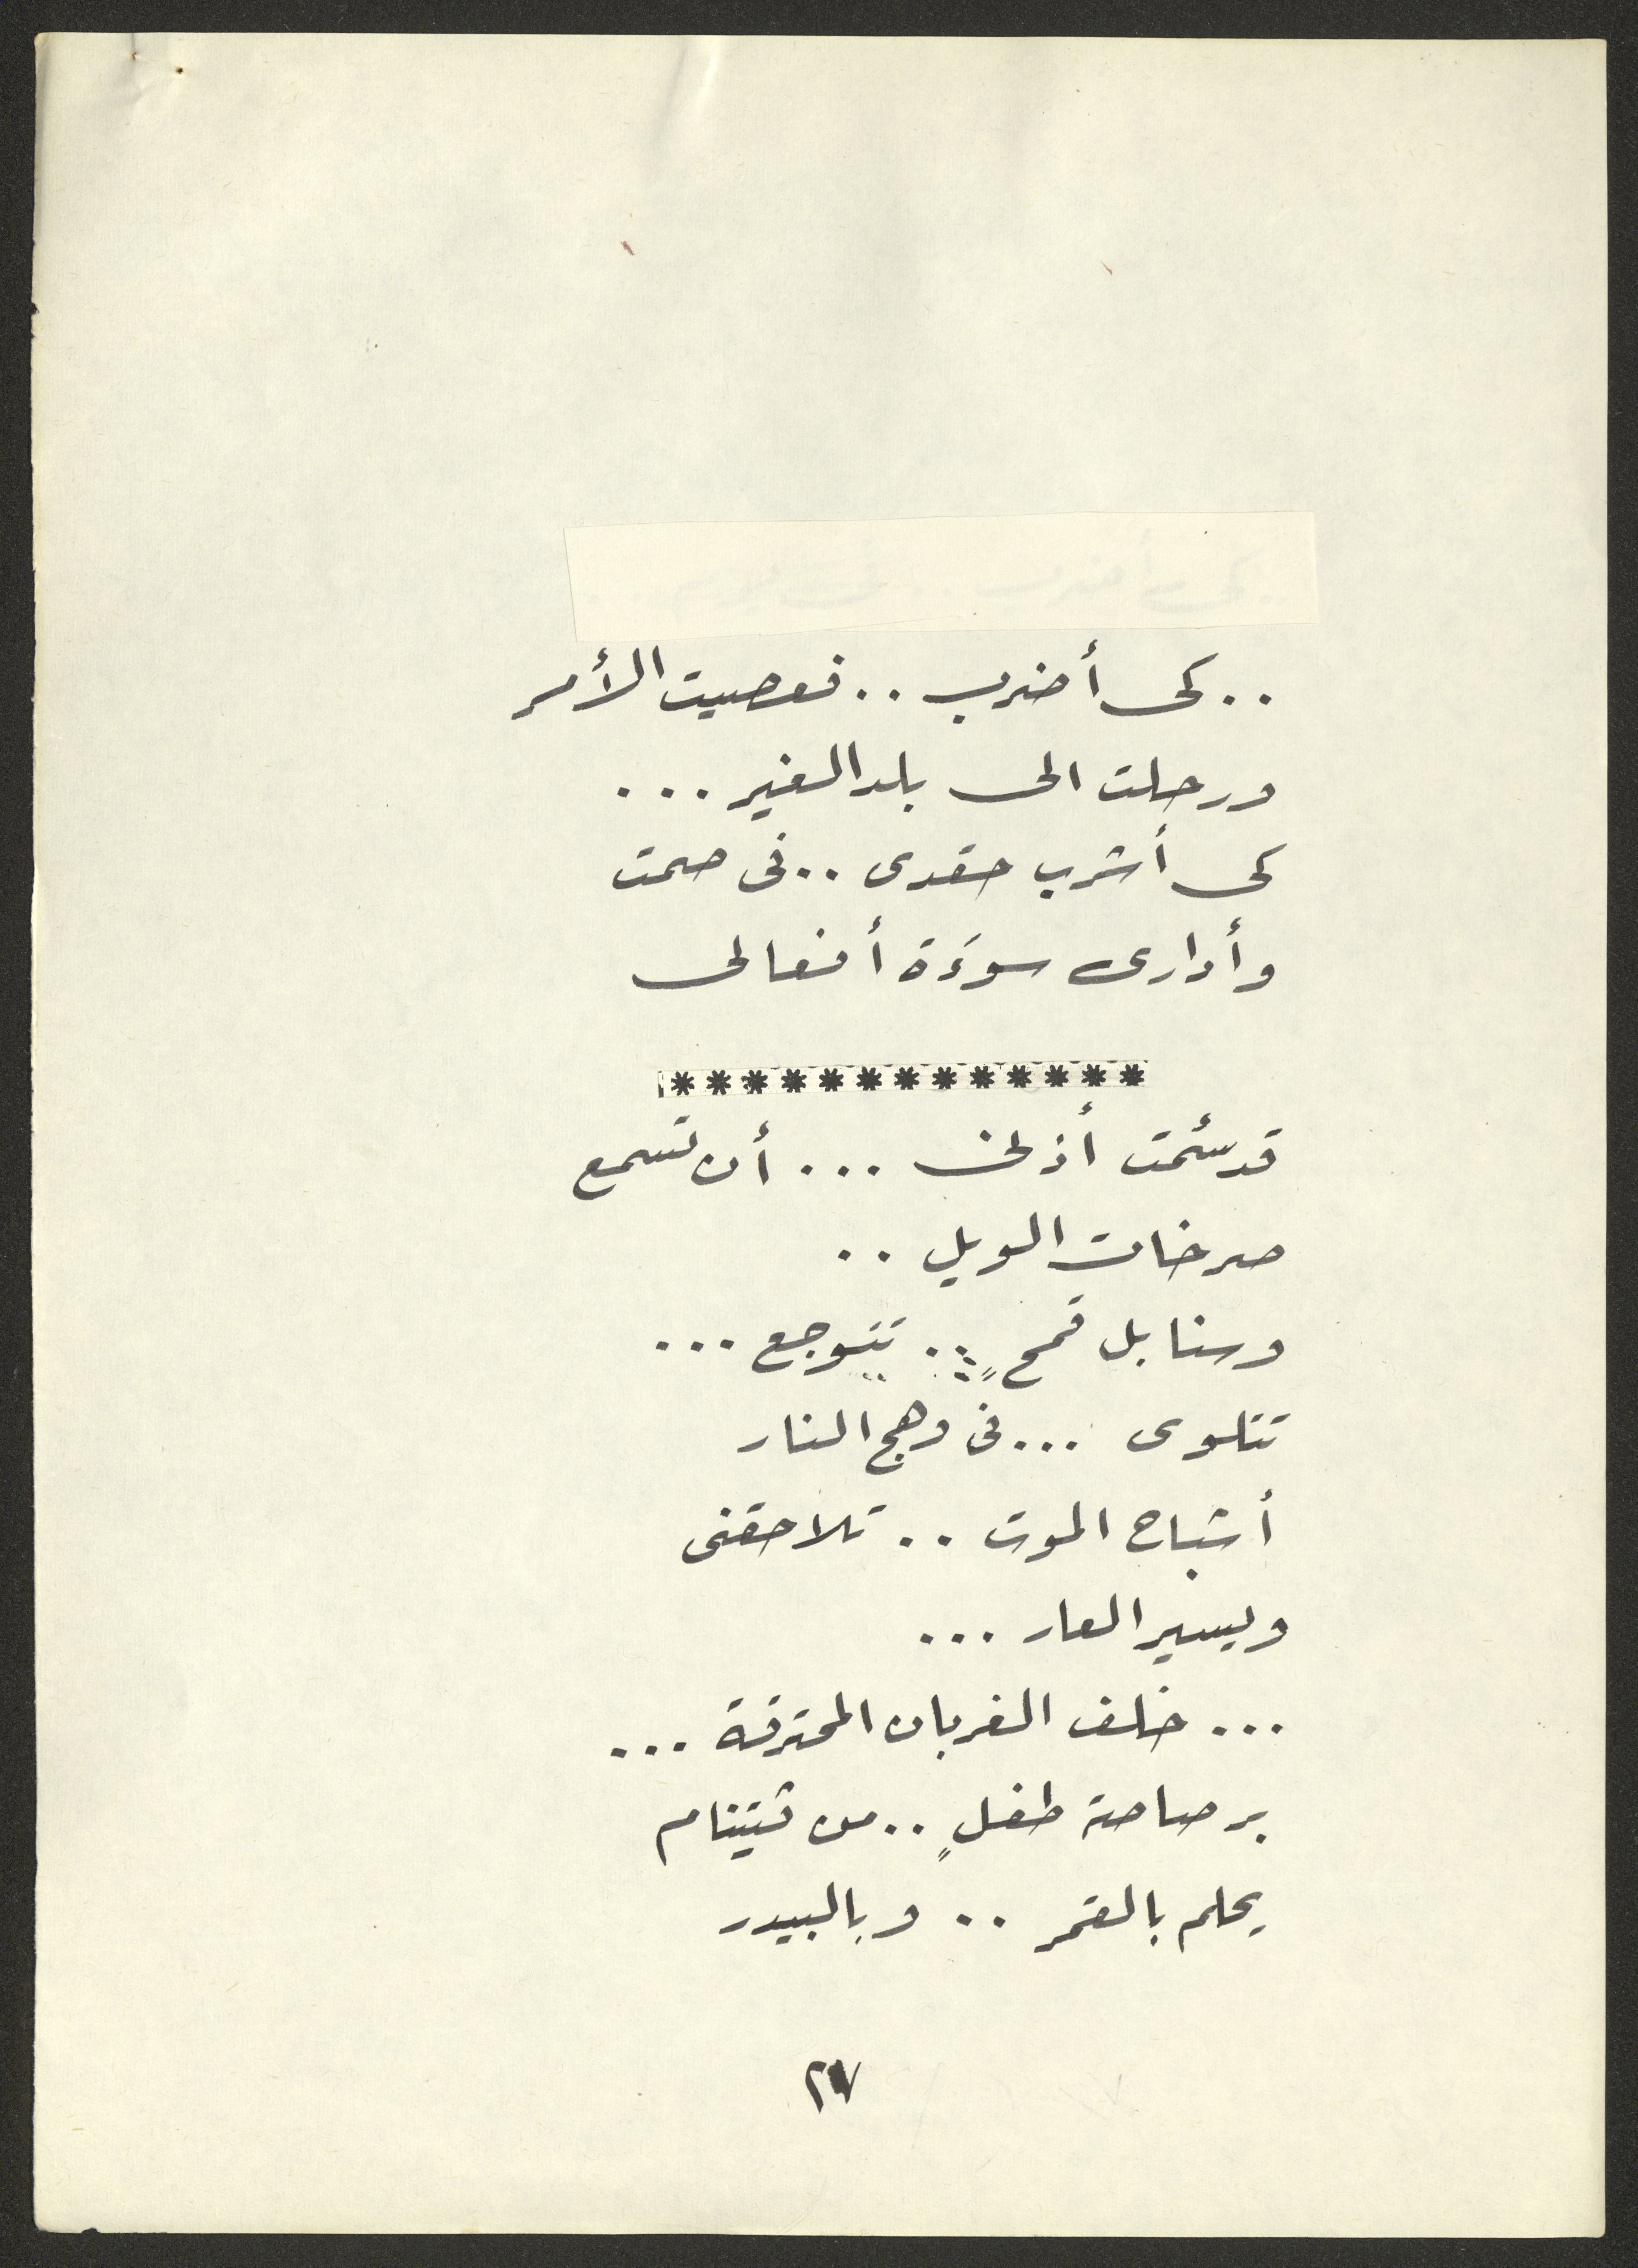 .. كى أضرب .. فعصيت الأمر
ورحلت الى بلد الغير ...
كى أشرب حقدى .. فى صمت
وأدارى سوءَة أفعالى
*************
قد سئمت أذنى ... أن تسمع
صرخات الويل ..
وسنابل قمحٍ .. تتوجع ...
تتلوى ... فى وهج النار
أشباح الموت .. تلاحقنى
ويسير العار ...
... خلف الغربان المحترقة ...
برصاصة طفلٍ .. من ڤيتنام
يحلم بالقمر .. وبالبيدر
٢٧